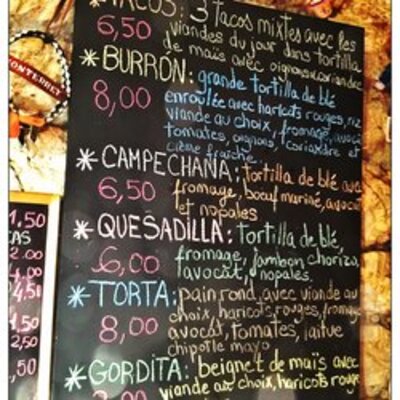 TACOS: 3 Tacos mixtes avec les
6,50 viandes du jour dans tortilla
de maïs avec oignons, coriandre
*BURRÓN: grande tortilla de blé
8,00 enroulée avec haricots rouges, riz
viande au choix, fromage, avocat
tomates, oignons, coriandre et
crème fraîche.
*CAMPECHAÑA: tortilla de blé avec
6,50 fromage, boeuf mariné, avocat
et nopales
*QUESADILLA: tortilla de blé,
6,00 fromage, jambon, chorizo,
avocat, nopales.
*TORTA: pain rond, avec viande au
8,00 choix, haricots, rouges, fromage
avocat, tomates, laitue
chipotle mayo.
*GORDITA: beignet de maïs avec
viande au choix, haricots rouge
MONTERREY
1,50
2.00
4,00
4,50